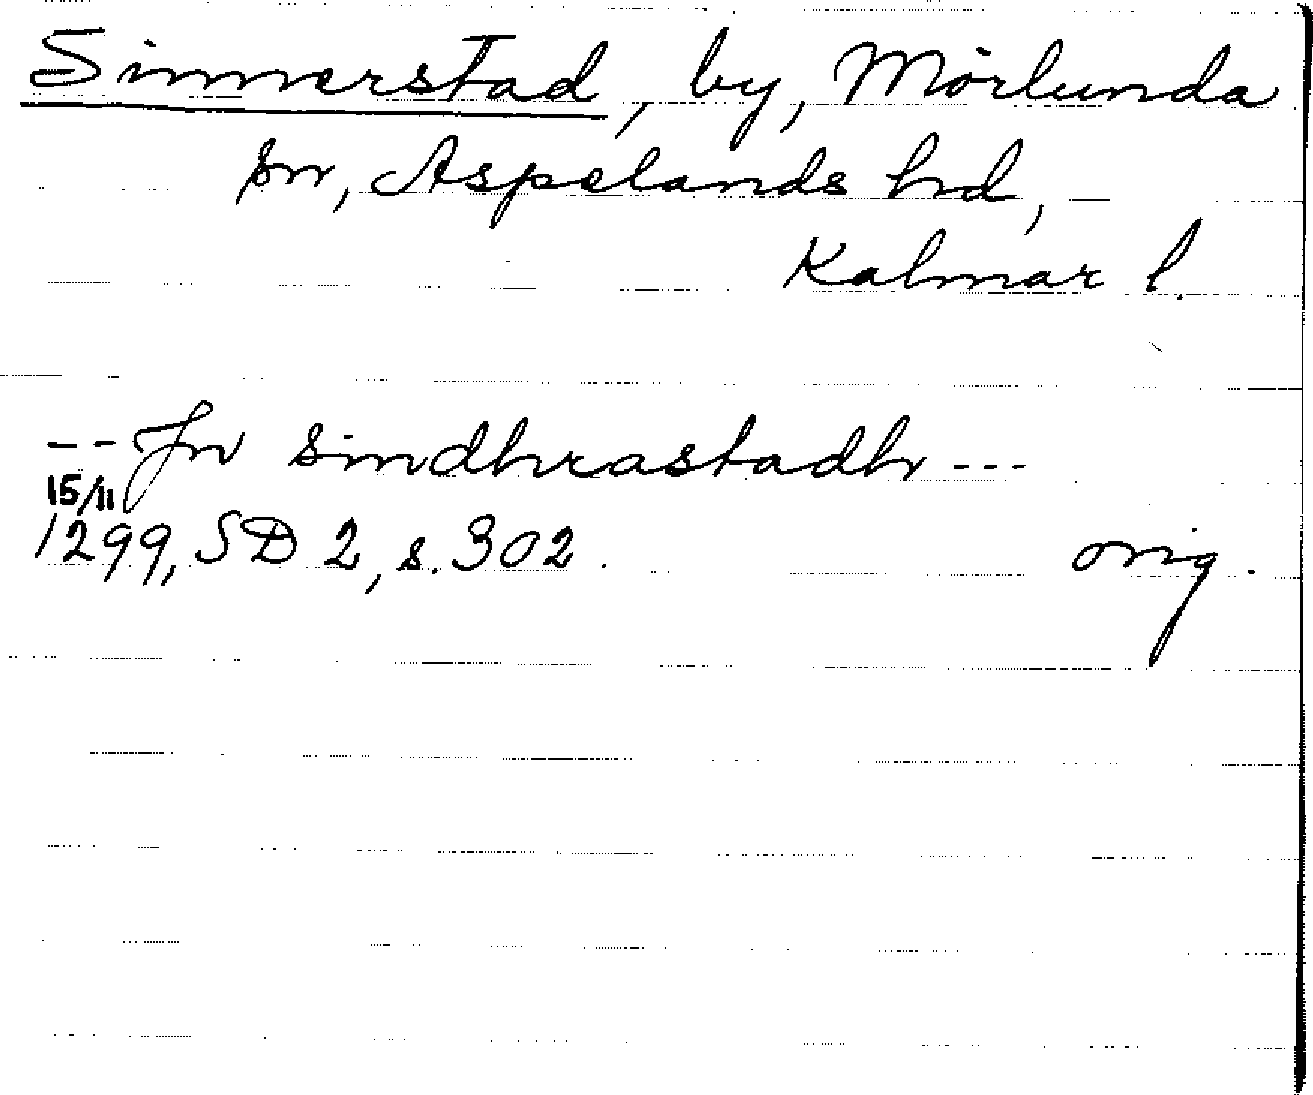 Sinnerstad, by, Mörlunda
sn, Aspelands hd,
Kalmar l.
-- Jn sindhrastadh ---
15/11
1299, SD 2, s. 302.
orig.